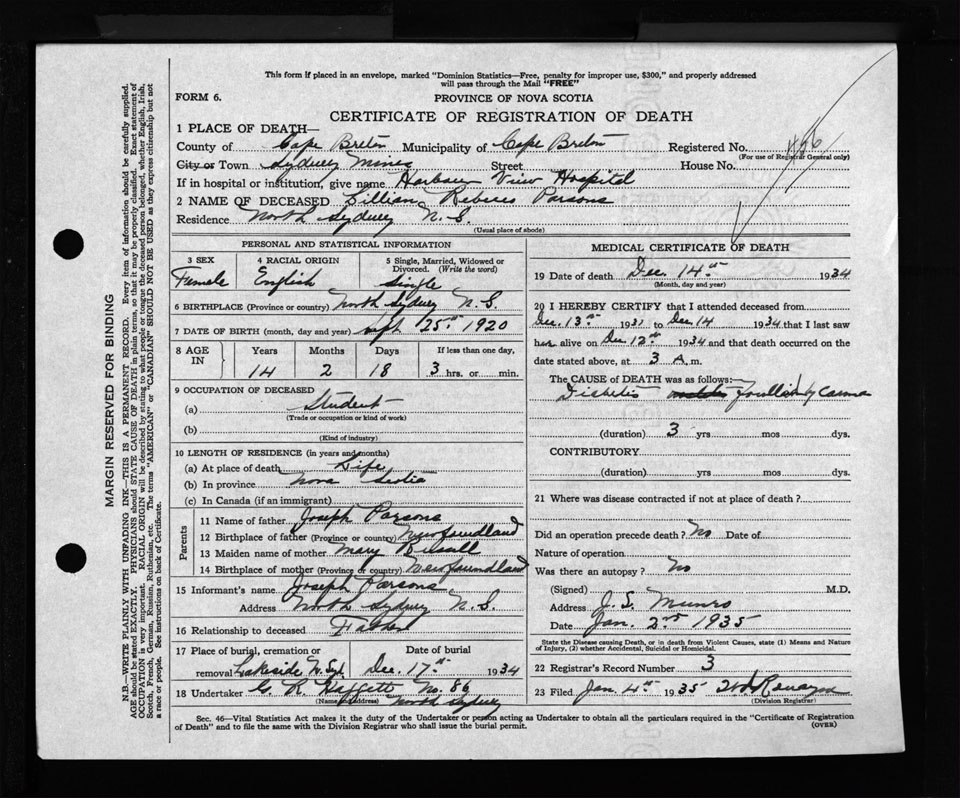 This form if placed in an envelope, marked "Dominion Statistics—Free, penalty for improper use, $300," and properly addressed
will pass through the Mail "FREE"
FORM 6.
PROVINCE OF NOVA SCOTIA
CERTIFICATE OF REGISTRATION OF DEATH
1 PLACE OF DEATH—
County of Cape Breton Municipality of Cape Breton Registered No. 486
(For use of Registrar General only)
City or Town Sydney Mines Street House No.
If in hospital or institution, give name Harbour View Hospital
2 NAME OF DECEASED Lillian Parsons
Residence North Sydney N.S.
(Usual place of abode)
MARGIN RESERVED FOR BINDING
N.B.—WRITE PLAINLY WITH UNFADING INK—THIS IS A PERMANENT RECORD. Every item of information should be carefully supplied.
AGE should be stated EXACTLY. PHYSICIANS should STATE CAUSE OF DEATH in plain terms, so that it may be properly classified. Exact statement of
OCCUPATION is very important. RACIAL ORIGIN will be described by stating to what people or tongue the deceased person belonged, whether English, Irish,
Scotch, French, German, Russian, Ruthenian, etc. The terms "AMERICAN" or "CANADIAN" SHOULD NOT BE USED as they express citizenship but not
a race or people. See instructions on back of Certificate.
PERSONAL AND STATISTICAL INFORMATION
3 SEX
Female
4 RACIAL ORIGIN
English
5 Single, Married, Widowed or
Divorced. (Write the word)
Single
6 BIRTHPLACE (Province or country) North Sydney N.S.
7 DATE OF BIRTH (month, day and year) Sept 25th 1920
8 AGE
IN
Years Months Days If less than one day,
14 2 18 3 hrs. or min.
9 OCCUPATION OF DECEASED
(a) Student
(Trade or occupation or kind of work)
(b)
(Kind of industry)
10 LENGTH OF RESIDENCE (in years and months)
(a) At place of death Life
(b) In province Nova Scotia
(c) In Canada (if an immigrant)
Parents
11 Name of father Joseph Parsons
12 Birthplace of father (Province or country) Newfoundland
13 Maiden name of mother Mary
14 Birthplace of mother (Province or country) Newfoundland
15 Informant's name Joseph Parsons
Address North Sydney N.S.
16 Relationship to deceased Father
17 Place of burial, cremation or Date of burial
removal Lakeside N. Syd. Dec. 17th 1934
18 Undertaker G. R. No. 86
(Name and Address) North Sydney
MEDICAL CERTIFICATE OF DEATH
19 Date of death Dec. 14th 1934
(Month, day and year)
20 I HEREBY CERTIFY that I attended deceased from
Dec. 13th 1931 to Dec 14 1934 that I last saw
her alive on Dec 12th 1934 and that death occurred on the
date stated above, at 3 A. m.
The CAUSE of DEATH was as follows:—
Diabetis followed by Carma
(duration) 3 yrs mos dys.
CONTRIBUTORY
(duration) yrs mos dys.
21 Where was disease contracted if not at place of death?
Did an operation precede death? No Date of
Nature of operation
Was there an autopsy? No
(Signed) M.D.
Address J. S. Munro
Date Jan. 2nd 1935
State the Disease causing Death, or in death from Violent Causes, state (1) Means and Nature
of Injury, (2) whether Accidental, Suicidal or Homicidal.
22 Registrar's Record Number 3
23 Filed Jan. 4th 1935
(Division Registrar)
Sec. 46—Vital Statistics Act makes it the duty of the Undertaker or person acting as Undertaker to obtain all the particulars required in the "Certificate of Registration
of Death" and to file the same with the Division Registrar who shall issue the burial permit. (OVER)